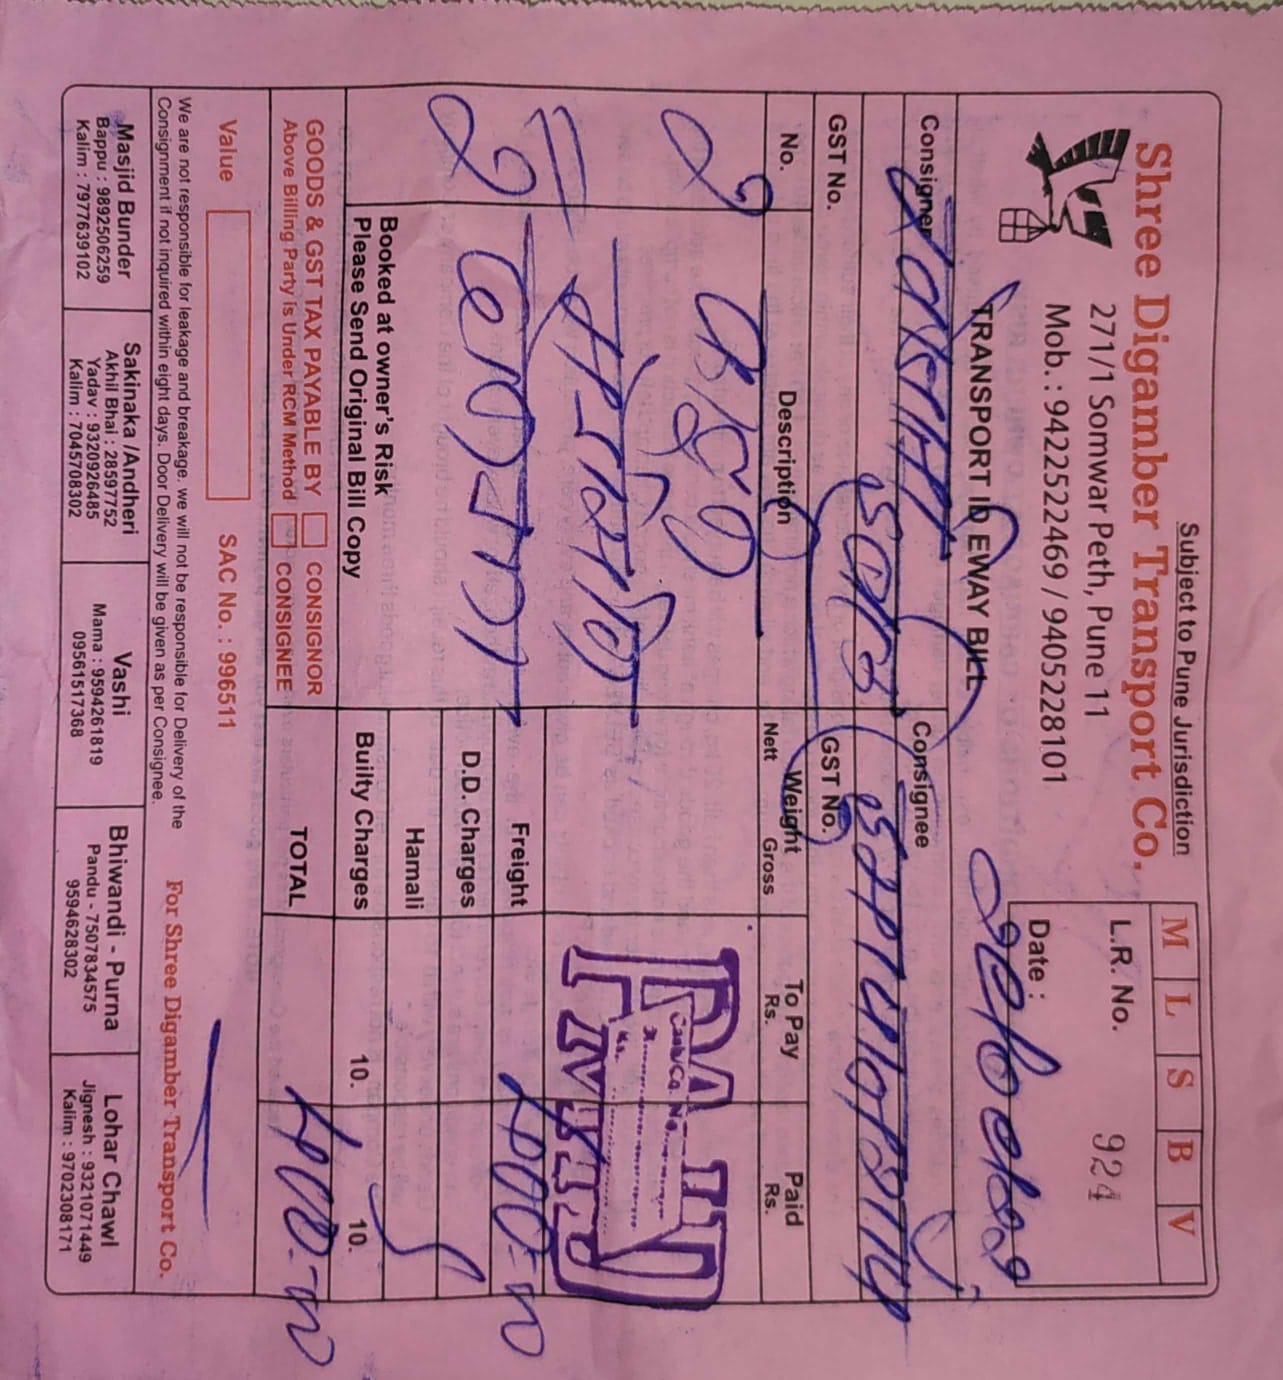 Subject to Pune Jurisdiction
Shree Digamber Transport Co.
271/1 Somwar Peth, Pune 11
Mob. : 9422522469 / 9405228101
M L S B V
L.R. No. 924
Date :
TRANSPORT ID EWAY BILL
Consigner
Consignee
GST No.
GST No.
No. Description Weight To Pay Paid
Nett Gross Rs. Rs.
2
PAID
Cash/Co. No.
Rs.
Freight 400-00
D.D. Charges
2
Hamali
Builty Charges 10. 10.
TOTAL 400-00
Booked at owner's Risk
Please Send Original Bill Copy
GOODS & GST TAX PAYABLE BY CONSIGNOR
Above Billing Party is Under RCM Method CONSIGNEE
Value SAC No. : 996511
We are not responsible for leakage and breakage. we will not be responsible for Delivery of the
Consignment if not inquired within eight days. Door Delivery will be given as per Consignee.
For Shree Digamber Transport Co.
Masjid Bunder
Bappu : 9892506259
Kalim : 7977639102
Sakinaka /Andheri
Akhil Bhai : 28597752
Yadav : 9320926485
Kalim : 7045708302
Vashi
Mama : 9594261819
09561517368
Bhiwandi - Purna
Pandu - 7507834575
9594628302
Lohar Chawl
Jignesh : 9321071449
Kalim : 9702308171